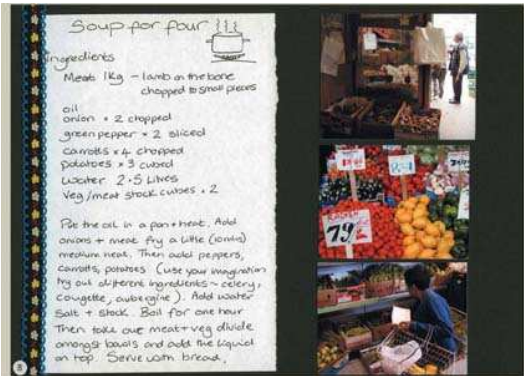 Soup for four
ingredients
Meat 1Kg - lamb on the bone
chopped to small pieces
oil
onion × 2 chopped
green pepper × 2 sliced
carrotts × 4 chopped
potatoes × 3 cubed
water 2.5 Litres
veg/meat stock cubes × 2
Put the oil in a pan + heat. Add
onions + meat fry a little (10mins)
medium heat. Then add peppers,
carrots, potatoes (use your imagination
try out different ingredients - celery,
cougette, aubergine). Add water
salt + stock. Boil for one hour
Then take out meat + veg divide
amongst bowls and add the liquid
on top. Serve with bread.
79
8